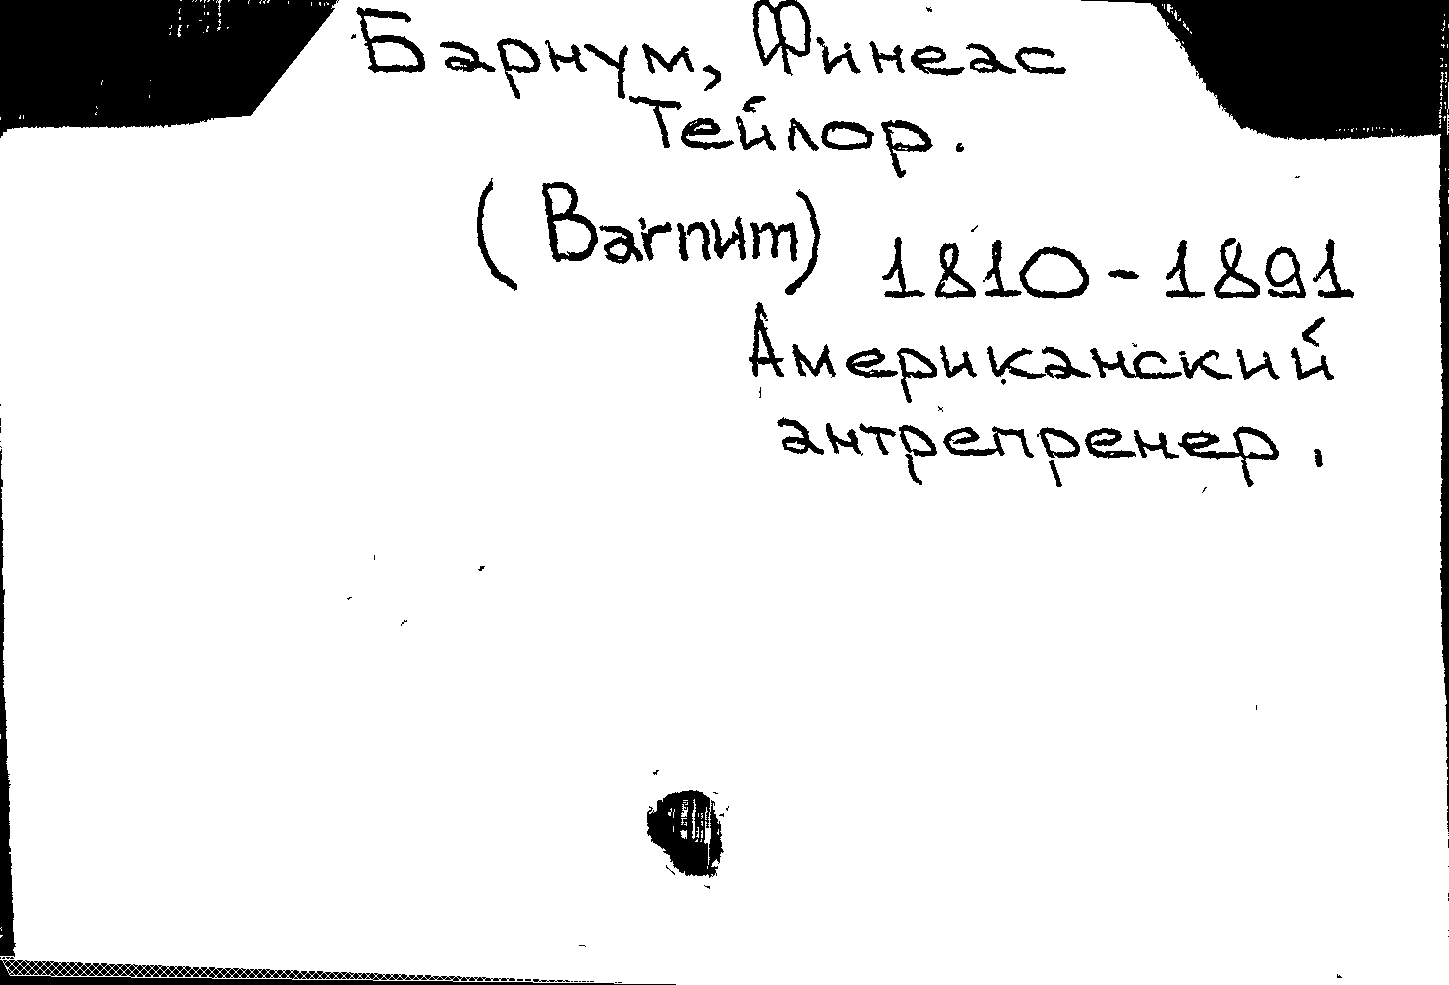 Барнум, Финеас
Тейлор.
(Barnum) 1810-1891
Американский
антрепренер.